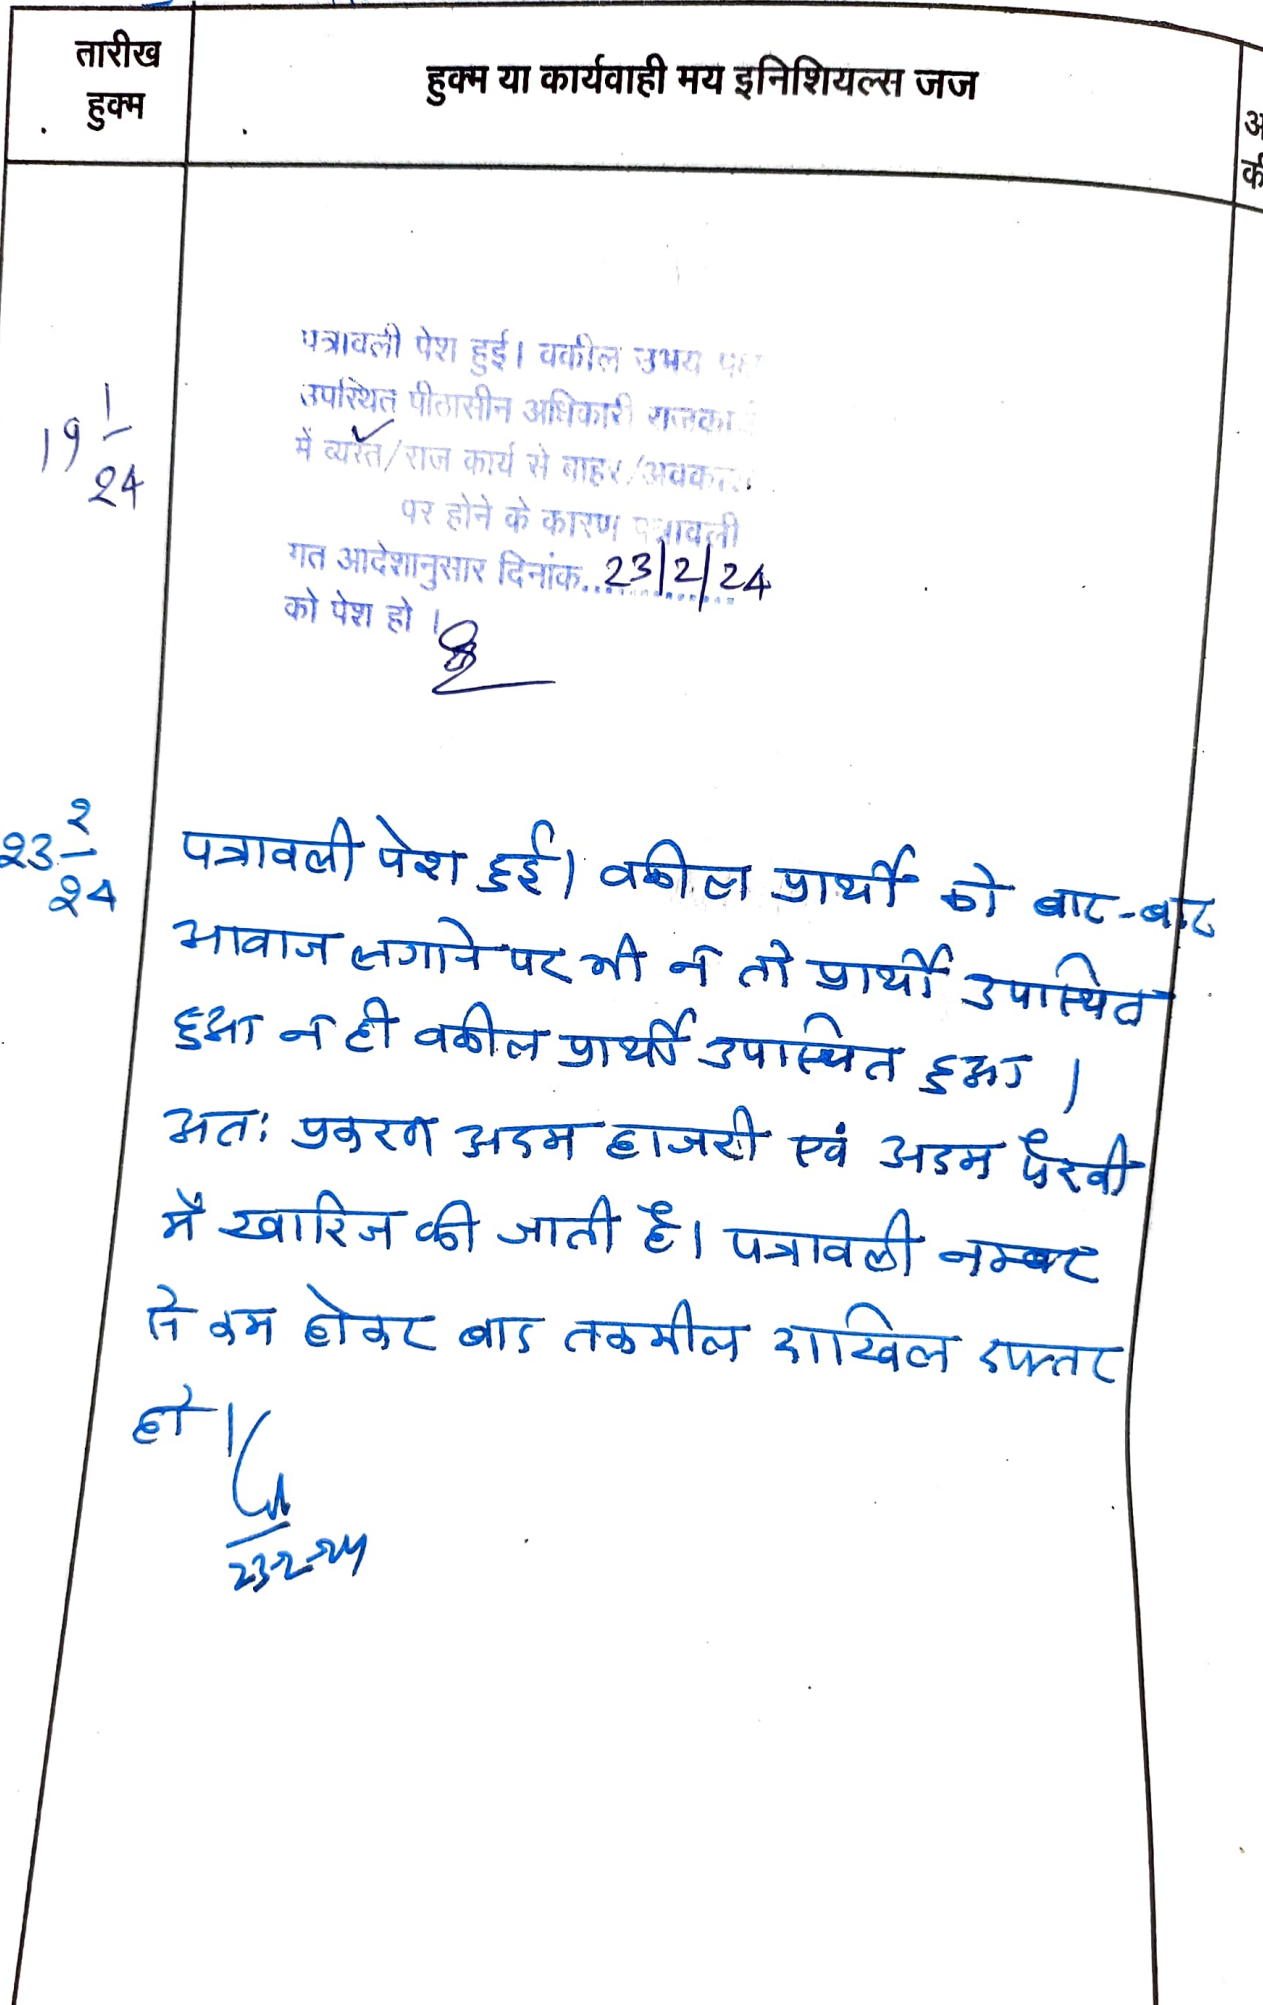 तारीख
हुक्म
हुक्म या कार्यवाही मय इनिशियल्स जज
अ
की
19 1/24
पत्रावली पेश हुई। वकील उभय पक्ष
उपस्थित पीठासीन अधिकारी राजका
में व्यस्त/राज कार्य से बाहर/अवकाश
पर होने के कारण पत्रावली
गत आदेशानुसार दिनांक..23/2/24
को पेश हो।
23 2/24
पत्रावली पेश हुई। वकील प्रार्थी को बार-बार
आवाज लगाने पर भी न तो प्रार्थी उपस्थित
हुआ न ही वकील प्रार्थी उपस्थित हुआ।
अतः प्रकरण अदम हाजरी एवं अदम पैरवी
में खारिज की जाती है। पत्रावली नम्बर
से कम होकर बाद तकमील दाखिल दफ्तर
हो।
23-2-24